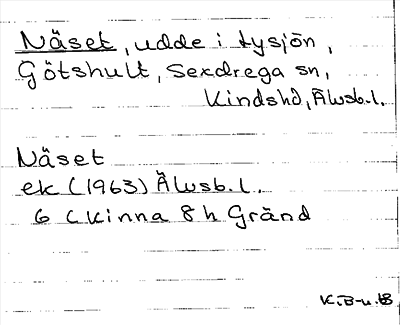 Näset, udde i Lysjön,
Götshult, Sexdrega sn,
Kindshd, Älvsb.l.
Näset
ek (1963) Älvsb.l.
6 C Kinna 8 h Gränd
K.B-u.